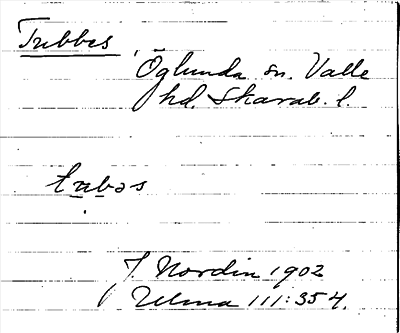 Tubbes
Öglunda sn. Valle
hd. Skarab. l.
tubəs
J. Nordin 1902
Ulma 111:354.